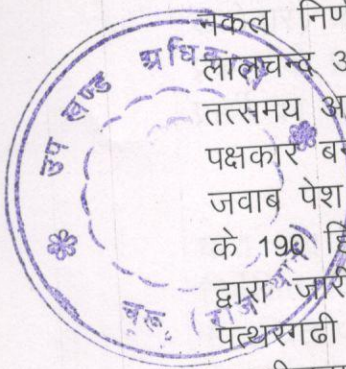 नकल निर्ण
लालचन्द अ
तत्समय अ
पक्षकार बन
जवाब पेश
के 190 हि
द्वारा जारी
पत्थरगढी
उप खण्ड अधिका
चूरू (राजस्थान)